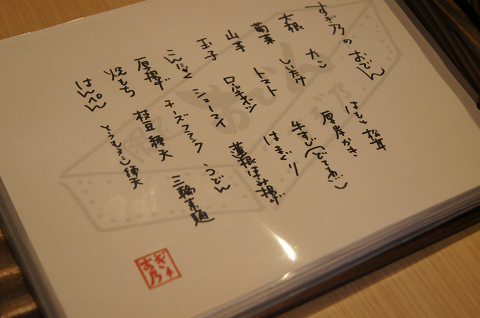 すぎ乃のおでん
大根 たこ はもと松茸
菊菜 しいたけ 厚岸かき
山芋 トマト 牛すじ
玉子 ロールキャベツ はまぐり
こんにゃく シューマイ 蓮根はさみ揚げ
厚揚げ チーズフランク うどん
焼もち 枝豆練天 三輪素麺
はんぺん とうもろこし練天